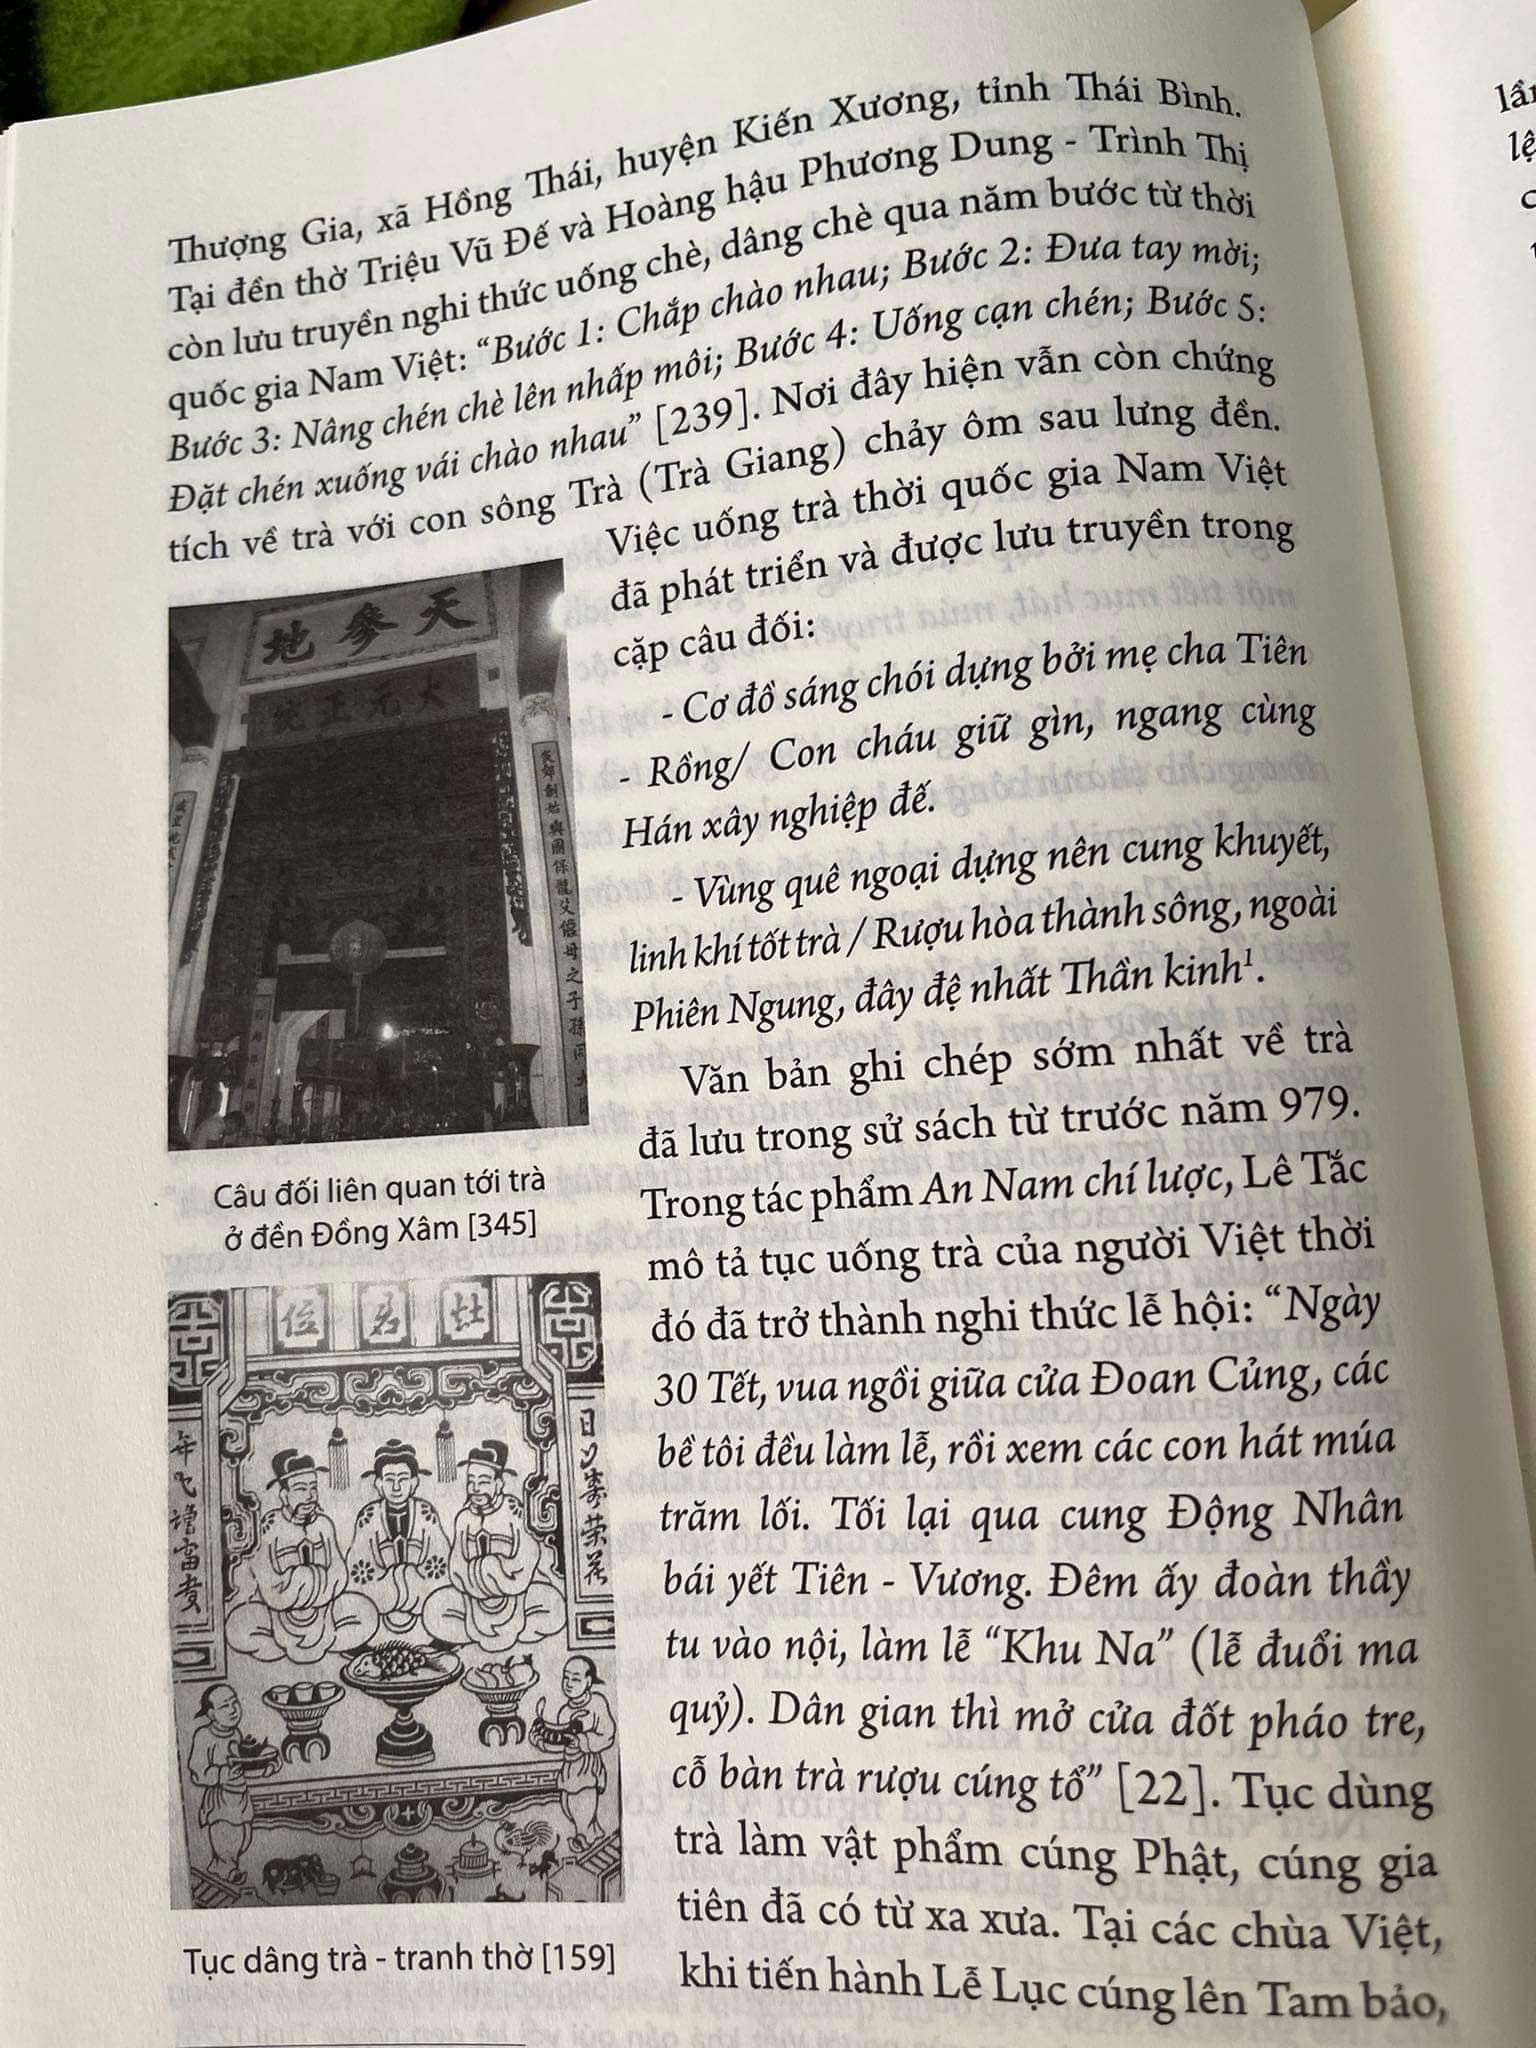 Thượng Gia, xã Hồng Thái, huyện Kiến Xương, tỉnh Thái Bình.
Tại đền thờ Triệu Vũ Đế và Hoàng hậu Phương Dung - Trình Thị
còn lưu truyền nghi thức uống chè, dâng chè qua năm bước từ thời
quốc gia Nam Việt: “Bước 1: Chắp chào nhau; Bước 2: Đưa tay mời;
Bước 3: Nâng chén chè lên nhấp môi; Bước 4: Uống cạn chén; Bước 5:
Đặt chén xuống vái chào nhau” [239]. Nơi đây hiện vẫn còn chứng
tích về trà với con sông Trà (Trà Giang) chảy ôm sau lưng đền.
Việc uống trà thời quốc gia Nam Việt
đã phát triển và được lưu truyền trong
cặp câu đối:
- Cơ đồ sáng chói dựng bởi mẹ cha Tiên
- Rồng/ Con cháu giữ gìn, ngang cùng
Hán xây nghiệp đế.
- Vùng quê ngoại dựng nên cung khuyết,
linh khí tốt trà / Rượu hòa thành sông, ngoài
Phiên Ngung, đây đệ nhất Thần kinh¹.
Văn bản ghi chép sớm nhất về trà
đã lưu trong sử sách từ trước năm 979.
Trong tác phẩm An Nam chí lược, Lê Tắc
mô tả tục uống trà của người Việt thời
đó đã trở thành nghi thức lễ hội: “Ngày
30 Tết, vua ngồi giữa cửa Đoan Củng, các
bề tôi đều làm lễ, rồi xem các con hát múa
trăm lối. Tối lại qua cung Động Nhân
bái yết Tiên - Vương. Đêm ấy đoàn thầy
tu vào nội, làm lễ “Khu Na” (lễ đuổi ma
quỷ). Dân gian thì mở cửa đốt pháo tre,
cỗ bàn trà rượu cúng tổ” [22]. Tục dùng
trà làm vật phẩm cúng Phật, cúng gia
tiên đã có từ xa xưa. Tại các chùa Việt,
khi tiến hành Lễ Lục cúng lên Tam bảo,
天參地
大元正統
炎郊創始與國保龍父僊母之子孫
Câu đối liên quan tới trà
ở đền Đồng Xâm [345]
位君灶
日
榮花
年
增富貴
Tục dâng trà - tranh thờ [159]
lầ
lệ